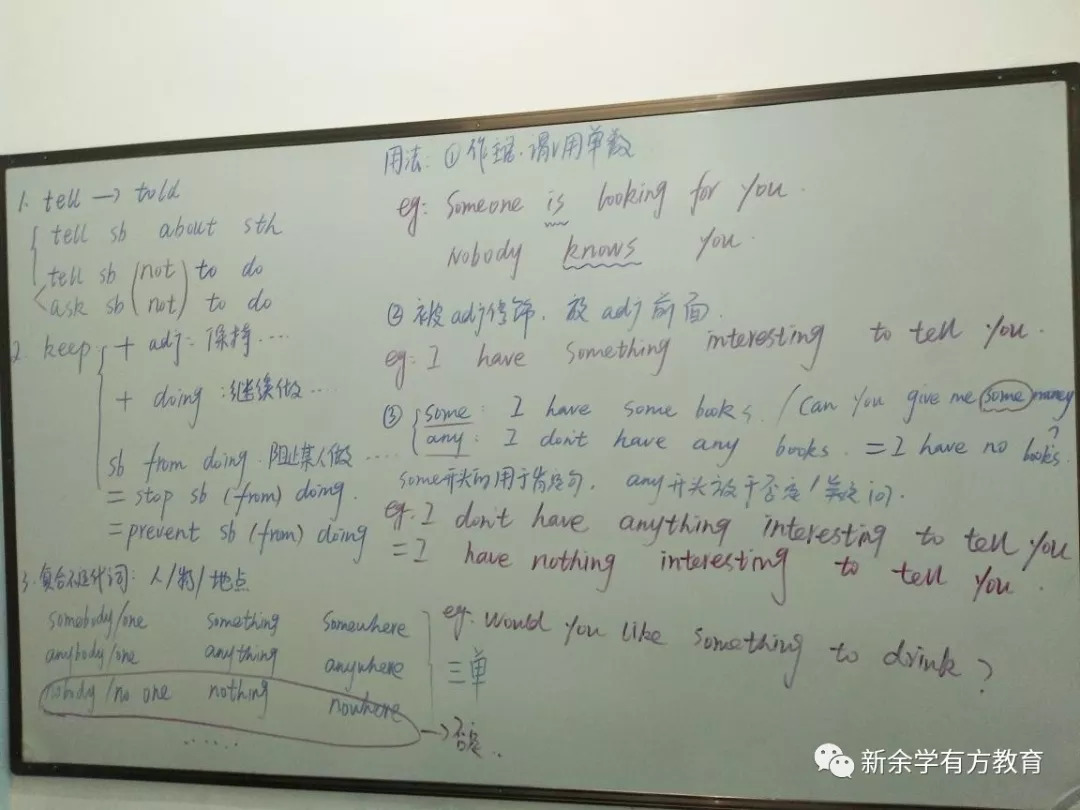 1. tell → told
tell sb about sth
tell sb (not) to do
ask sb (not) to do
2. keep + adj: 保持……
+ doing: 继续做……
sb from doing 阻止某人做……
= stop sb (from) doing.
= prevent sb (from) doing
3. 复合不定代词: 人/物/地点
somebody/one something somewhere
anybody/one anything anywhere
nobody/no one nothing nowhere
……
三单
→否定.
用法: ①作主语.谓v用单数
eg: Someone is looking for you.
Nobody knows you.
②被adj修饰, 放adj前面.
eg: I have something interesting to tell you.
③ some: I have some books. / Can you give me some money?
any: I don't have any books. = I have no books.
some开头的用于肯定句, any开头放于否定/疑问.
eg. I don't have anything interesting to tell you
= I have nothing interesting to tell you.
eg. would you like something to drink?
新余学有方教育